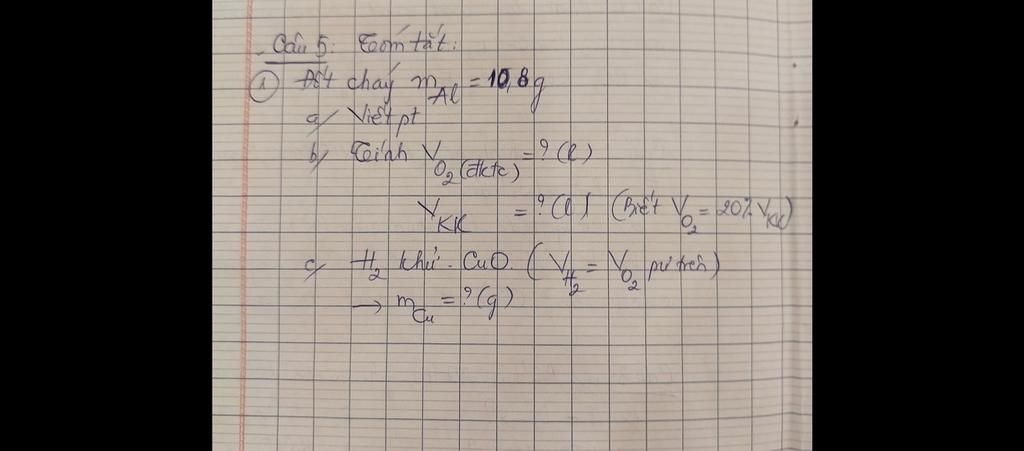 Câu 5: Tóm tắt:
① Đốt cháy m Al = 10,8g
a/ Viết pt
b/ Tính V O₂ (đktc) = ? (l)
V KK = ? (l) (Biết V O₂ = 20% V KK)
c/ H₂ khử CuO. (V H₂ = V O₂ pư trên)
→ m Cu = ? (g)